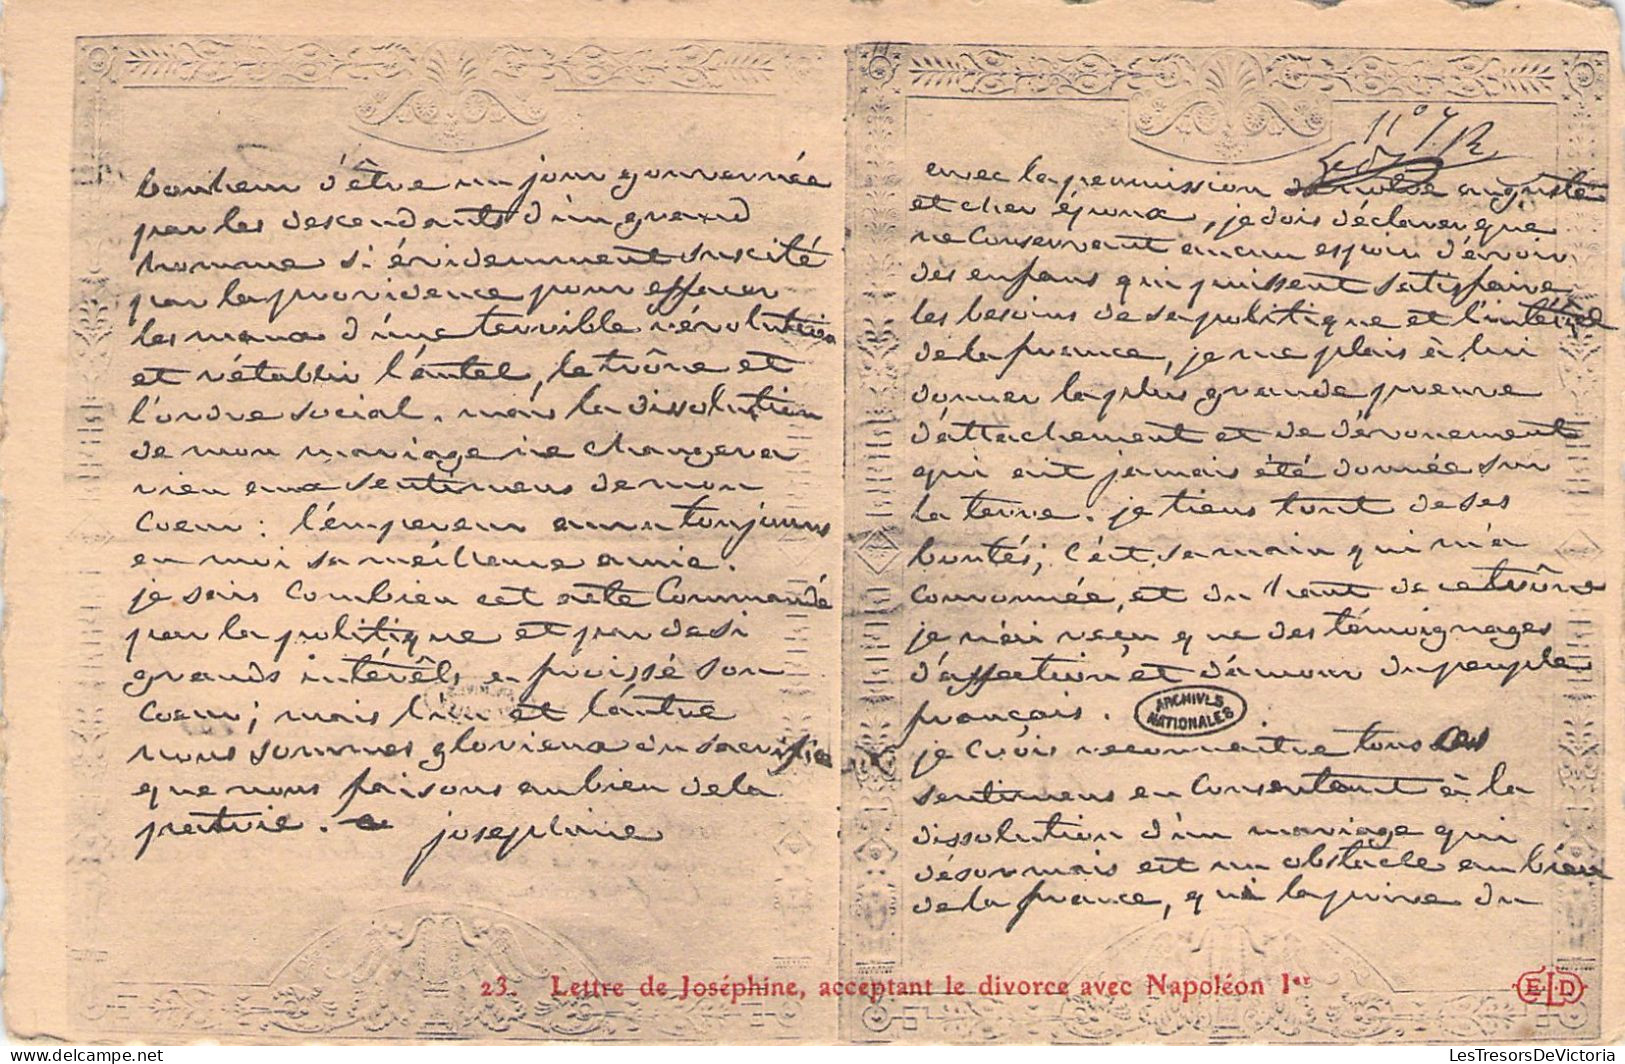 avec la permission de notre auguste
et cher époux, je dois déclarer que
ne conservant aucun espoir d'avoir
des enfans qui puissent satisfaire
les besoins de sa politique et l'intérêt
de la france, je me plais à lui
donner la plus grande preuve
d'attachement et de dévouement
qui ait jamais été donnée sur
la terre. je tiens tout de ses
bontés; c'est sa main qui m'a
couronnée, et du haut de ce trône
je n'ai reçu que des témoignages
d'affection et d'amour du peuple
français.
ARCHIVES
NATIONALES
je crois reconnaitre tous ces
sentimens en consentant à la
dissolution d'un mariage qui
désormais est un obstacle au bien
de la france, qui la prive du
bonheur d'être un jour gouvernée
par les descendants d'un grand
homme si évidemment suscité
par la providence pour effacer
les maux d'une terrible révolution
et rétablir l'autel, le trône et
l'ordre social. mais la dissolution
de mon mariage ne changera
rien aux sentimens de mon
coeur: l'empereur aura toujours
en moi sa meilleure amie.
je sais combien cet acte commandé
par la politique et par de si
grands intérêts a froissé son
coeur; mais l'un et l'autre
nous sommes glorieux du sacrifice
que nous faisons au bien de la
patrie. josephine
23. Lettre de Joséphine, acceptant le divorce avec Napoléon Ier
ELD
LesTresorsDeVictoria